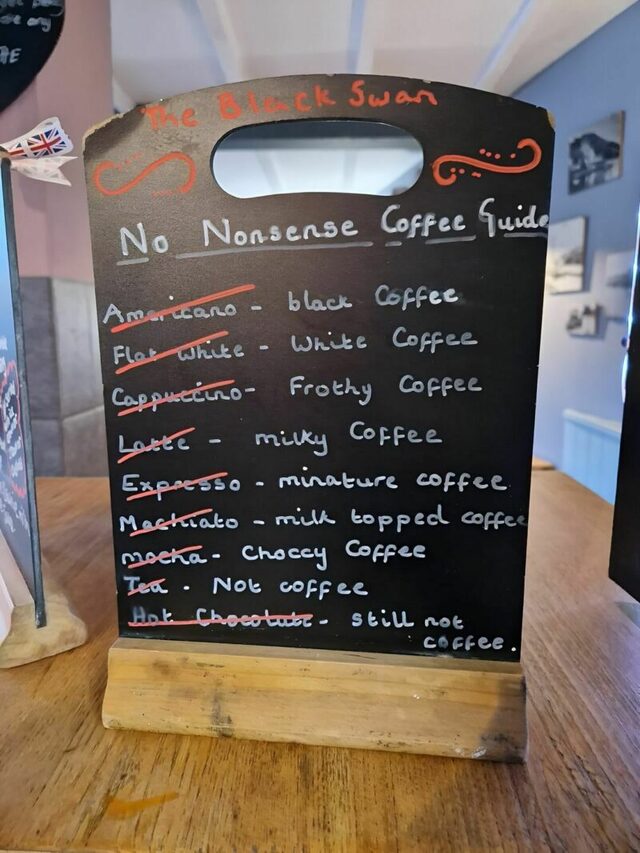 The Black Swan
No Nonsense Coffee Guide
Americano - black Coffee
Flat White - White Coffee
Cappuccino - Frothy Coffee
Latte - milky Coffee
Expresso - minature coffee
Machiato - milk topped coffee
mocha - Choccy Coffee
Tea - Not coffee
Hot Chocolate - still not
coffee.